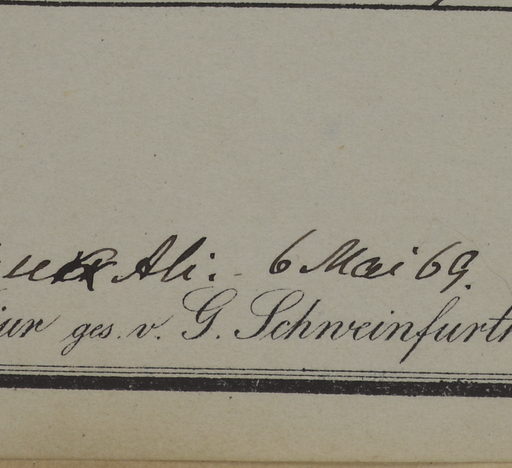 Ali. 6 Mai 69.
iur ges. v. G. Schweinfurth